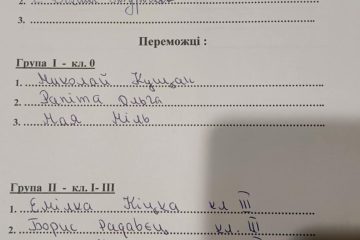 2.
3.
Переможці :
Група I - кл. 0
1. Миколай Кущак
2. Рапіта Ольга
3. Мая Міль
Група II - кл. I- III
1. Емілка Кіцка кл III
2. Борис Радавєц кл. III